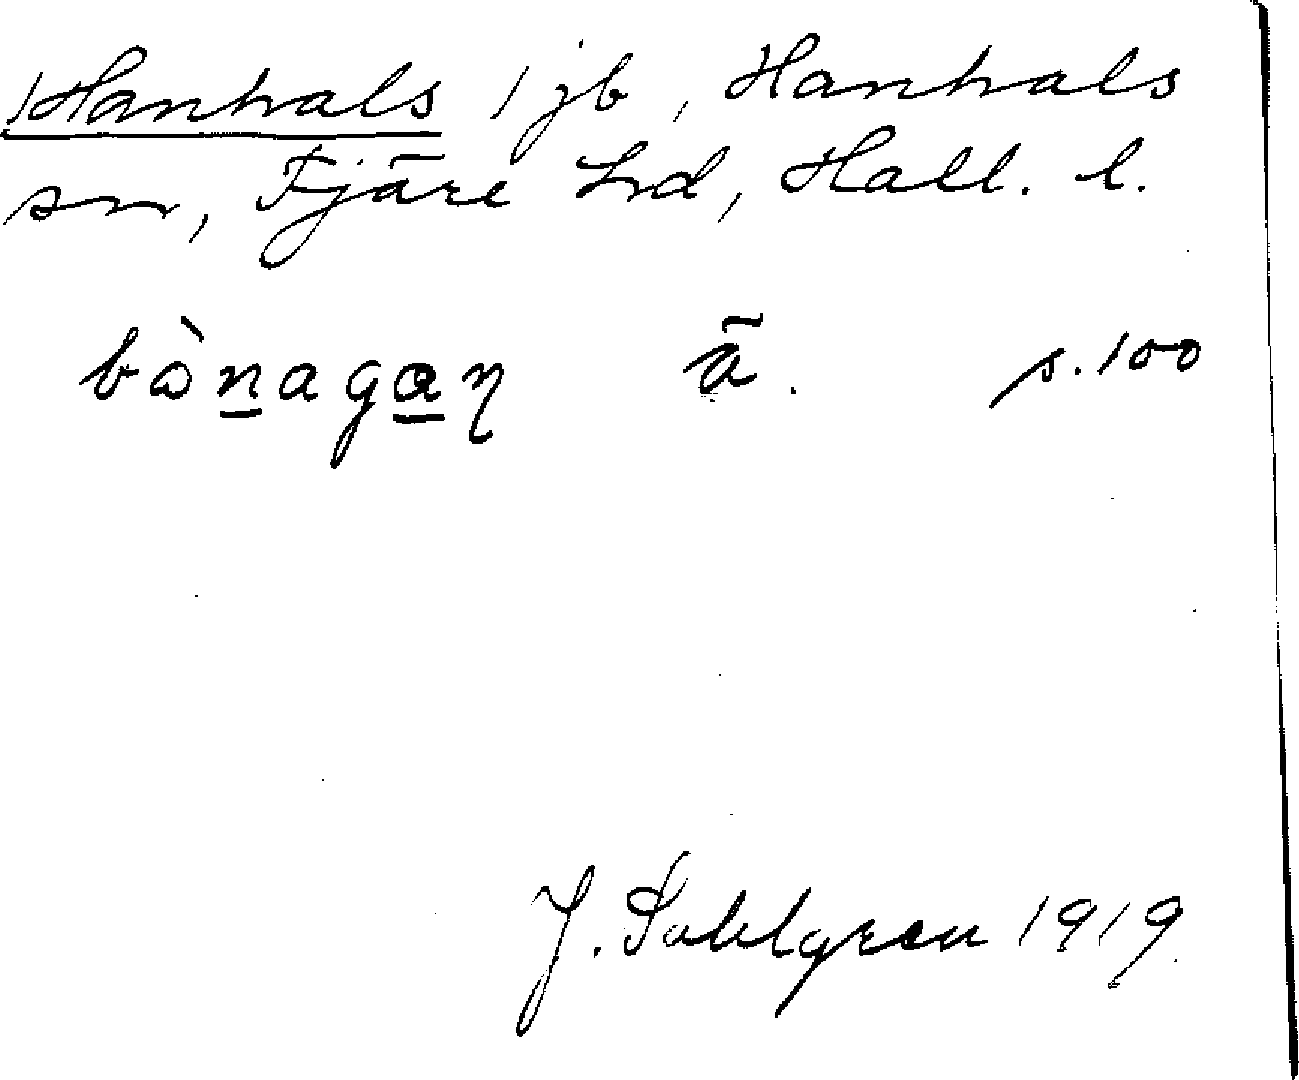 Hanhals 1 jb, Hanhals
sn, Fjäre hd, Hall. l.
bònagaŋ ā. s. 100
J. Sahlgren 1919